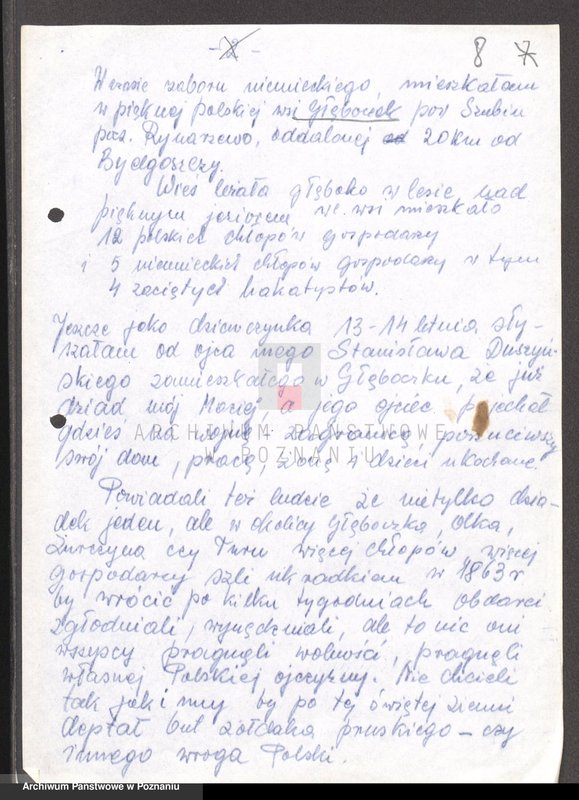 - 2 -
8 7
W czasie zaboru niemieckiego, mieszkałam
w pięknej polskiej wsi Głęboczek pow Szubin
pocz. Rynarzewo, oddalonej od 20 km od
Bydgoszczy.
Wieś leżała głęboko w lesie, nad
pięknym jeziorem, we wsi mieszkało
12 polskich chłopów gospodarzy
i 5 niemieckich chłopów gospodarzy w tym
4 zaciętych hakatystów.
Jeszcze jako dziewczynka 13-14 letnia sły-
szałam od ojca mego Stanisława Duszyń-
skiego zamieszkałego w Głęboczku, że już
dziad mój Maciej, a jego ojciec pojechał
gdzieś na wojnę zagranicę porzuciwszy
swój dom, pracę, żonę i dzieci ukochane.
Powiadali też ludzie że nietylko dzia-
dek jeden, ale w okolicy Głęboczka, Ołka,
Żurczyna czy Turu więcej chłopów, więcej
gospodarzy szli ukradkiem w 1863 r
by wrócić po kilku tygodniach obdarci
zgłodniali, wynędzniali, ale to nic oni
wszyscy pragnęli wolności, pragnęli
własnej Polskiej ojczyzny. Nie chcieli
tak jak i my by po tej świętej ziemi
deptał but żołdaka pruskiego - czy
innego wroga Polski.
ARCHIWUM PAŃSTWOWE
W POZNANIU
Archiwum Państwowe w Poznaniu